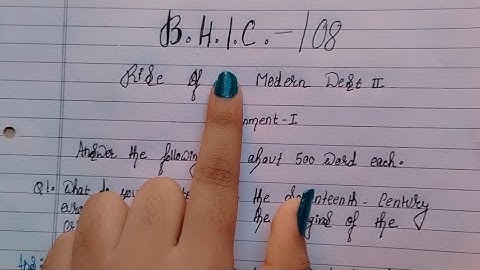 B.H.I.C.-108
Rise of Modern West II
nment-I
Answer the following about 500 word each.
Q1. What do you the Seventeenth-Century
the of the